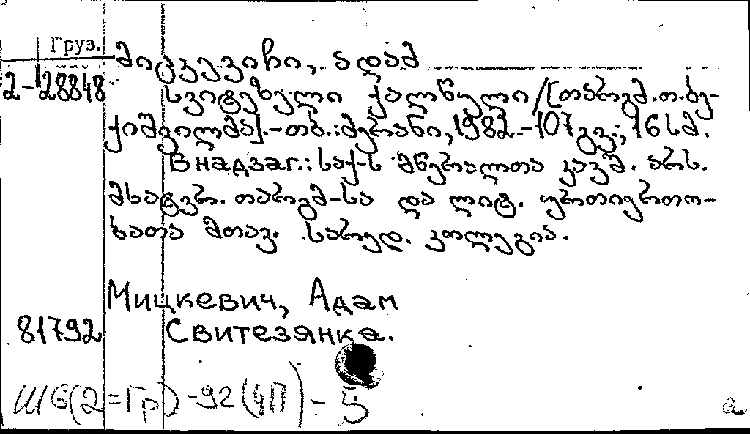 Груз.
მიცკევიჩი, ადამ
2-28848
სვიტეზელი ქალწული/[თარგმ. თ. ბე-
ქიშვილმა].-თბ.: მერანი, 1982.-107 გვ.; 16 სმ.
В надзаг.: საქ-ს მწერალთა კავშ. არს.
მხატვრ. თარგმ-სა და ლიტ. ურთიერთო-
ბათა მთავ. სარედ. კოლეგია.
Мицкевич, Адам
81792 Свитезянка.
Ш6(2=Гр)-92(4П)-5
а